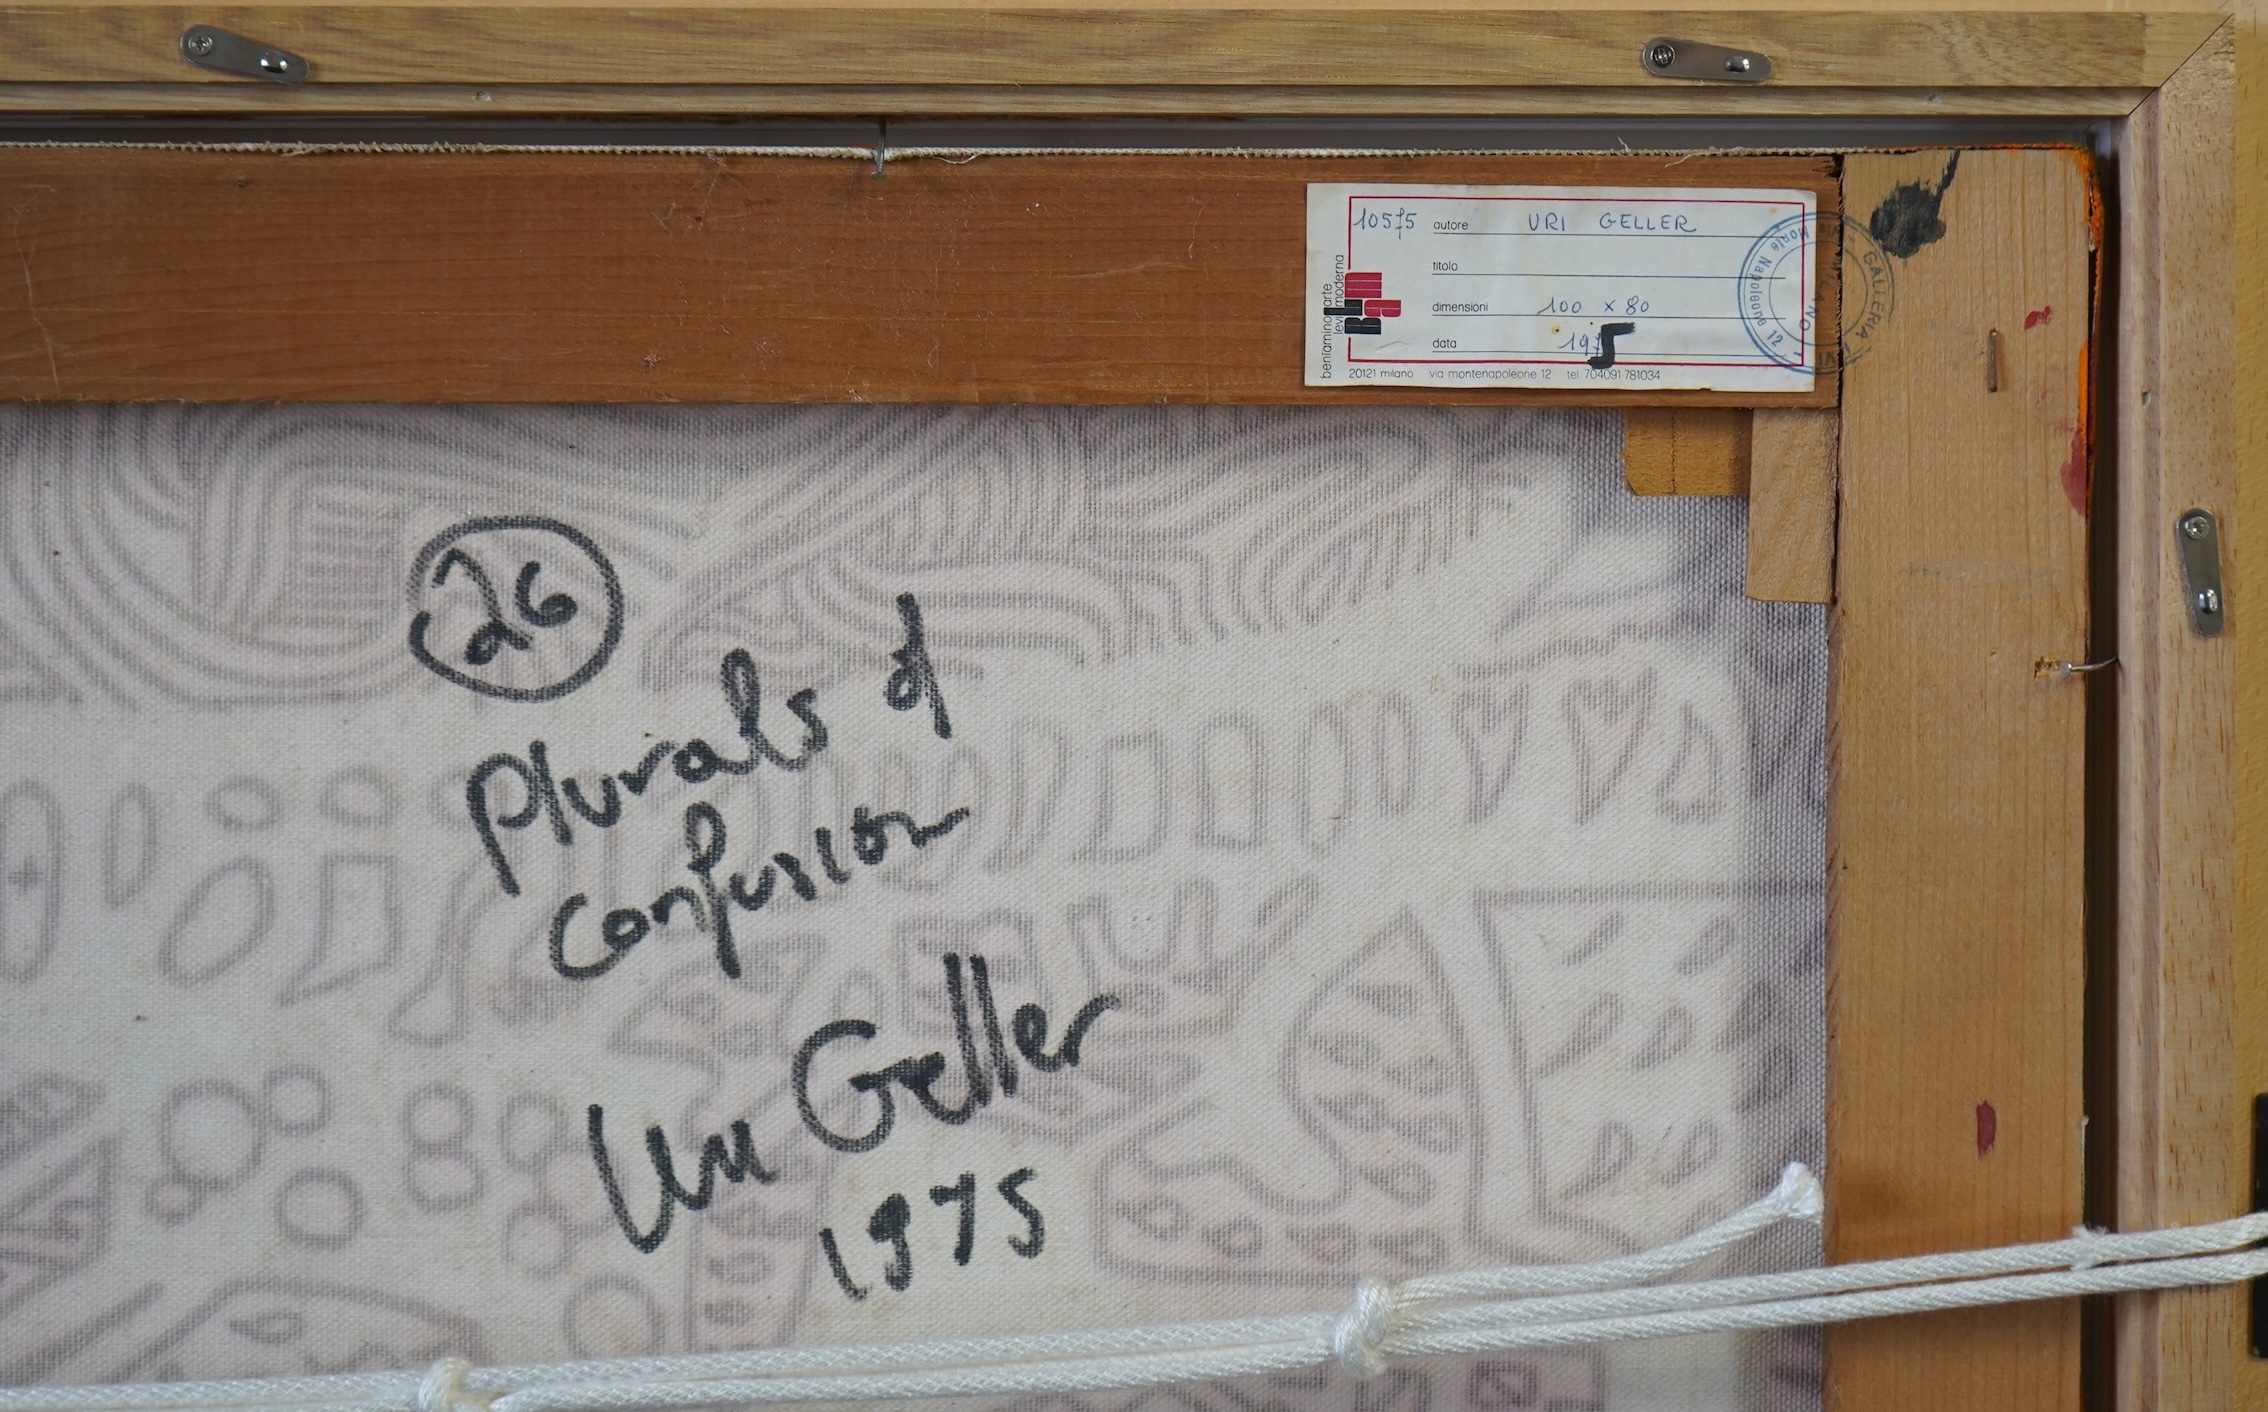 10575 autore URI GELLER
titolo
dimensioni 100 x 80
data 1975
beniamino levi arte moderna
20121 milano via montenapoleone 12 tel. 704091-781034
GALLERIA LEVI
MILANO
Monte Napoleone 12
26
Plurals of
confusion
Uri Geller
1975